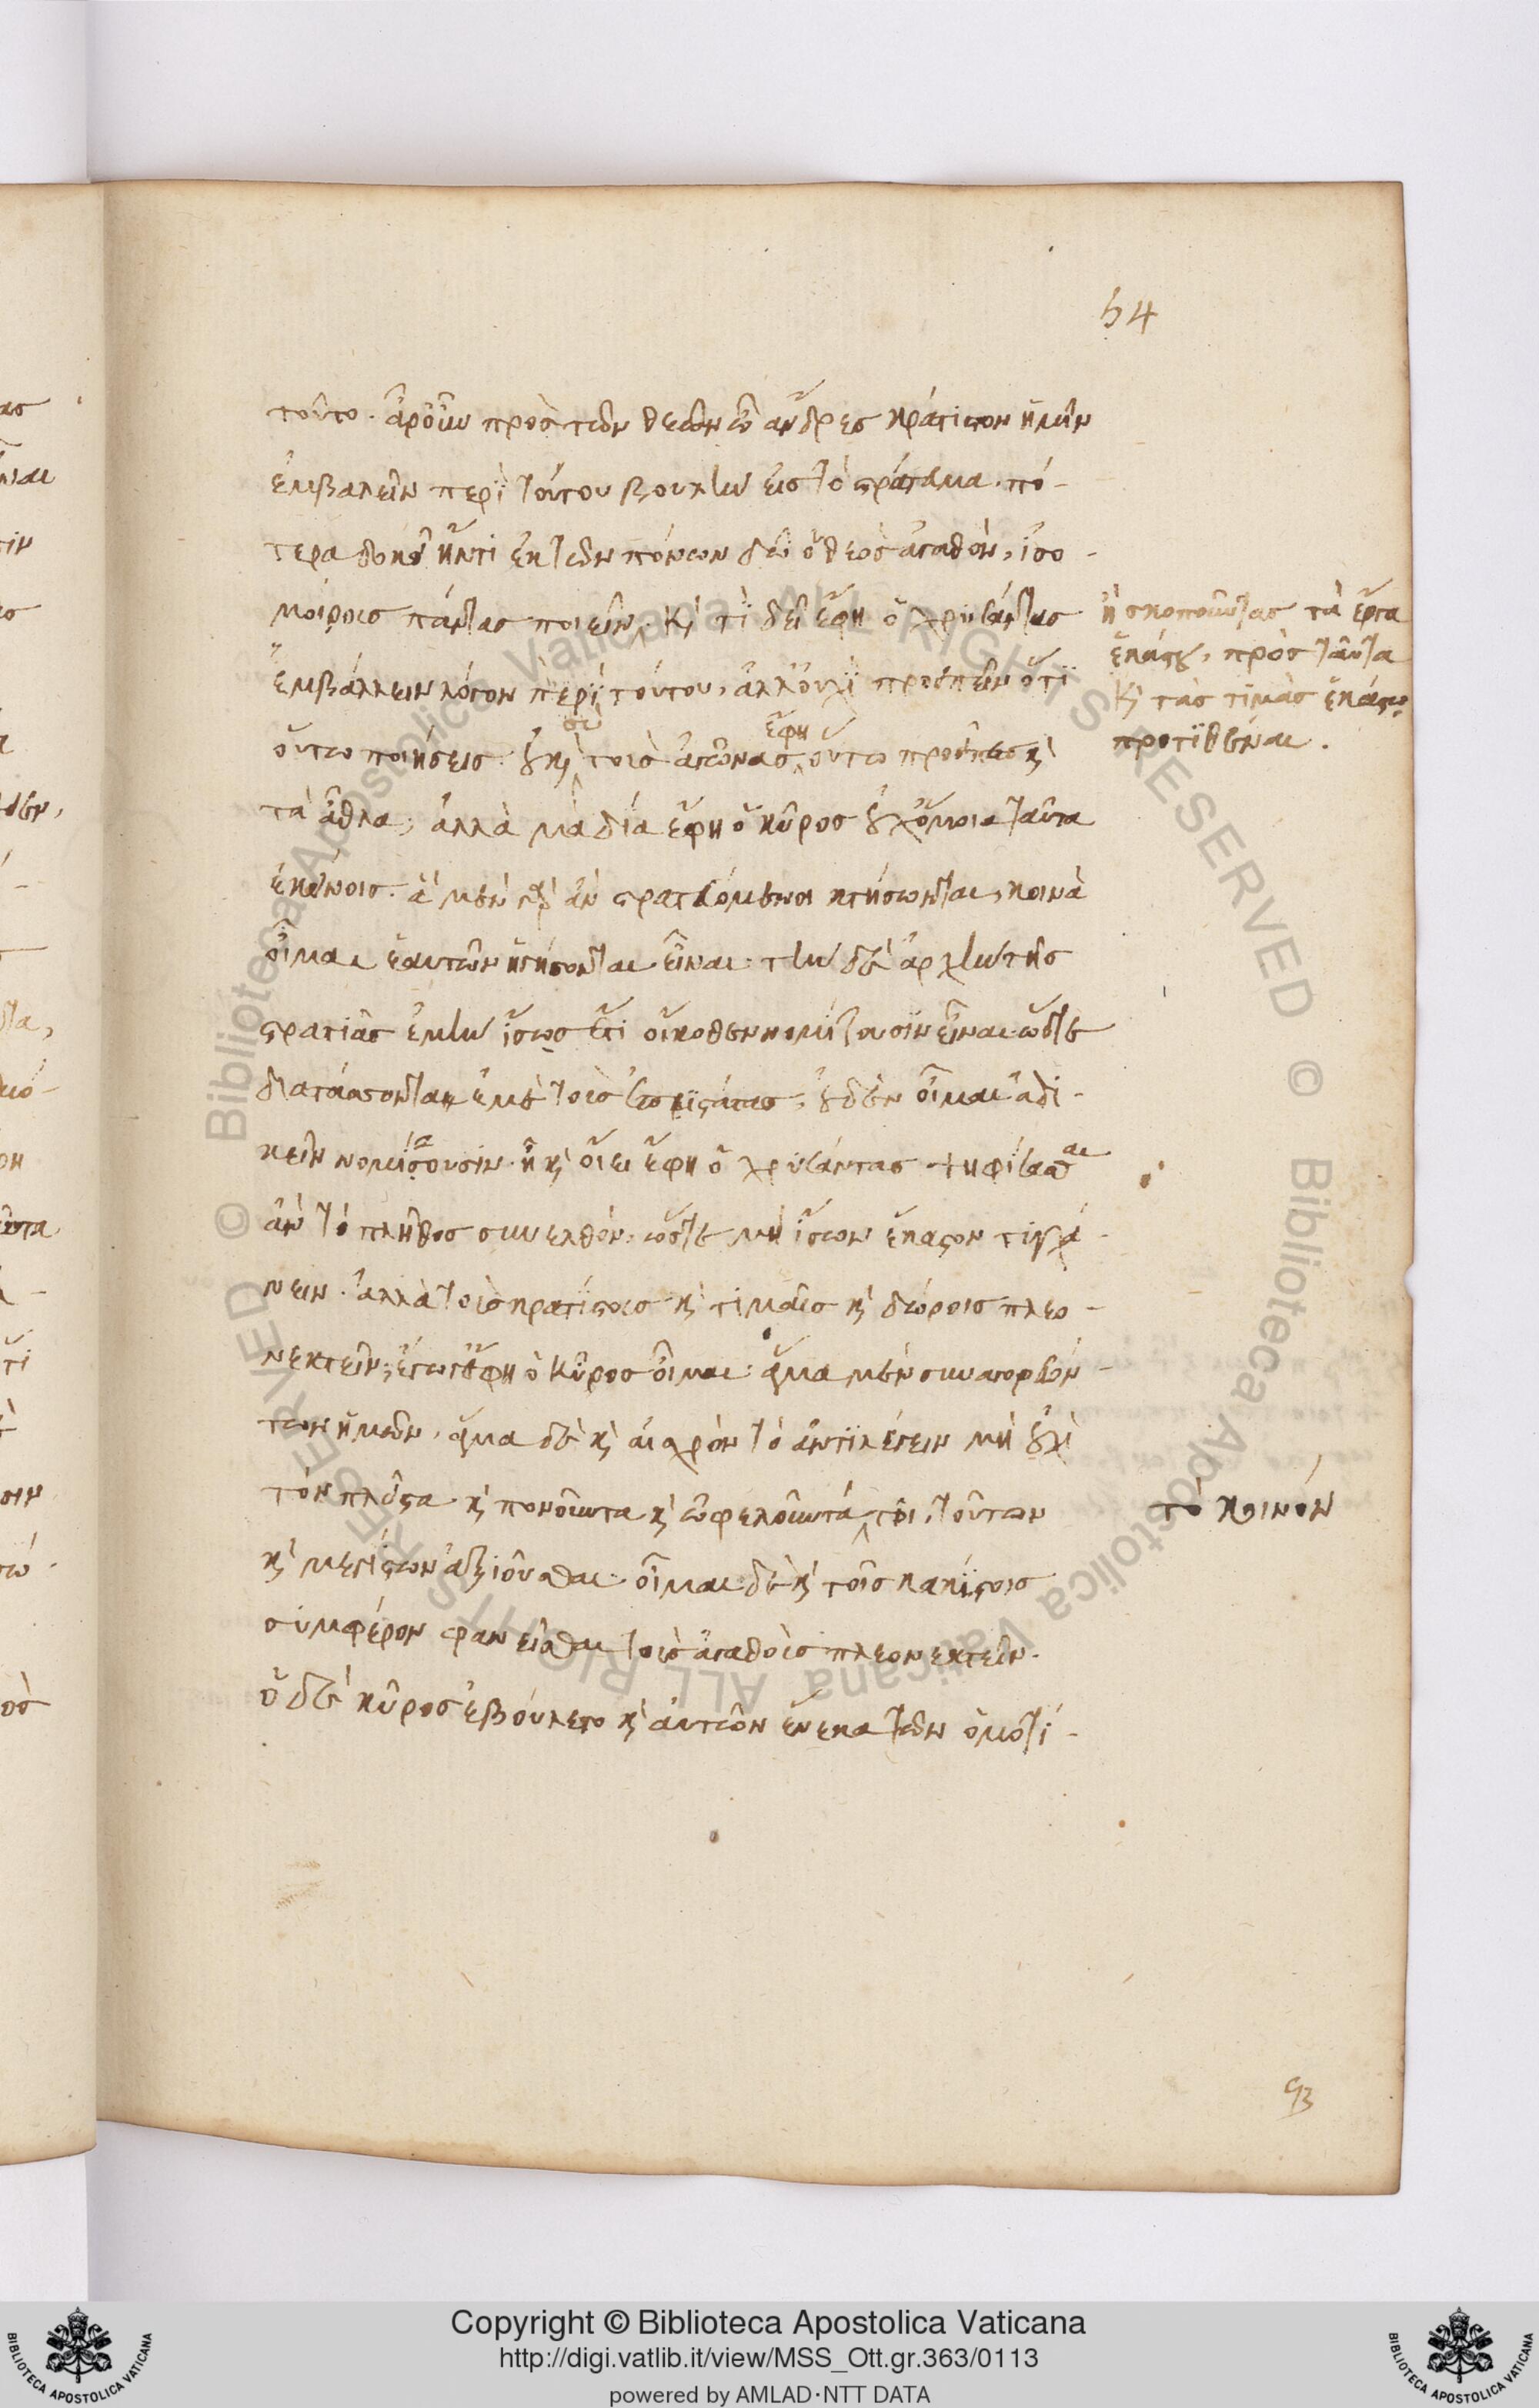 54
τοῦτο. ἆρ' οὖν πρὸς τῶν θεῶν ὦ ἄνδρες κράτιστον ἡμῖν
ἐμβαλεῖν περὶ τούτου βουλὴν εἰς τὸ στράτευμα. πό-
τερα δοκεῖ ἤν τι ἐκ τῶν πόνων δῶ ὁ θεὸς ἀγαθὸν, ἰσο-
μοίρους πάντας ποιεῖν, Καὶ τί δεῖ ἔφη ὁ χρυσάντας
ἐμβάλλειν λόγον περὶ τούτου, ἀλλ' οὐχὶ προειπεῖν ὅτι
οὕτω ποιήσεις. οὐ καὶ σὺ τοὺς ἀγῶνας ἔφη οὕτω προεῖπας καὶ
τὰ ἆθλα; ἀλλὰ μὰ δία ἔφη ὁ κῦρος οὐχ ὅμοια ταῦτα
ἐκείνοις. ἃ μὲν γὰρ ἂν στρατευόμενοι κτήσωνται, κοινὰ
οἶμαι ἑαυτῶν ἡγήσονται εἶναι. τὴν δὲ ἀρχὴν τῆς
στρατιᾶς ἐμὴν ἴσως ἔτι οἴκοθεν νομίζουσιν εἶναι ὥστε
διατάττοντα ἐμὲ τοὺς ἐπιστάτας, οὐδὲν οἶμαι ἀδι-
κεῖν νομίζουσιν. ἦ καὶ οἴει ἔφη ὁ χρυσάντας ψηφίσασθαι
ἂν τὸ πλῆθος συνελθὸν, ὥστε μὴ ἴσων ἕκαστον τυγχά-
νειν. ἀλλὰ τοὺς κρατίστους καὶ τιμαῖς καὶ δώροις πλεο-
νεκτεῖν; ἔγωγ' ἔφη ὁ Κῦρος οἶμαι. ἅμα μὲν συναγορευόν-
των ἡμῶν, ἅμα δὲ καὶ αἰσχρὸν τὸ ἀντιλέγειν μὴ οὐχὶ
τὸν πλεῖστα καὶ πονοῦντα καὶ ὠφελοῦντα τοι, τούτων
καὶ μεγίστων ἀξιοῦσθαι. οἶμαι δὲ καὶ τοῖς κακίστοις
συμφέρον φανεῖσθαι τοὺς ἀγαθοὺς πλεονεκτεῖν.
ὁ δὲ κῦρος ἐβούλετο καὶ αὐτῶν ἕνεκα τῶν ὁμοτί-
ἢ σκοποῦντας τὰ ἔργα
ἑκάστου, πρὸς ταῦτα
Καὶ τὰς τιμὰς ἑκάστῳ
προτιθέναι.
τὸ κοινόν
93
Copyright © Biblioteca Apostolica Vaticana
http://digi.vatlib.it/view/MSS_Ott.gr.363/0113
powered by AMLAD·NTT DATA